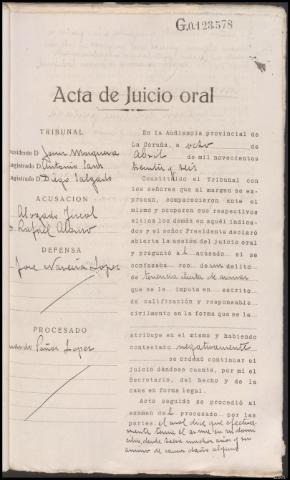 G.0.123578
Acta de Juicio oral
TRIBUNAL
esidente D. Jesus Mosquera
agistrado D. Antonio
agistrado D. Diego Salgado
ACUSACION
Abogado Fiscal
D. Rafael Alonso
DEFENSA
Jose Naveira Lopez
PROCESADO
nando Patiño Lopez
En la Audiencia provincial de
La Coruña, a ocho de
Abril de mil novecientos
treinta y seis
Constituido el Tribunal con
los señores que al margen se ex-
presan, comparecieron ante el
mismo y ocuparon sus respectivos
sitios los demás en aquél indica-
dos y el señor Presidente declaró
abierta la sesión del juicio oral
y preguntó al acusado si se
confesaba reo de un delito
de tenencia ilícita de armas
que se le imputa en escrito
de calificación y responsable
civilmente en la forma que se le
atribuye en el mismo y habiendo
contestado negativamente
se ordenó continuar el
juicio dándose cuenta, por mí el
Secretario, del hecho y de la
causa en forma legal.
Acto seguido se procedió al
examen del procesado por las
partes, el cual dice que efectiva-
mente tenía el arma en su domi-
cilio, desde hacía muchos años y sin
animo de causar daño alguno